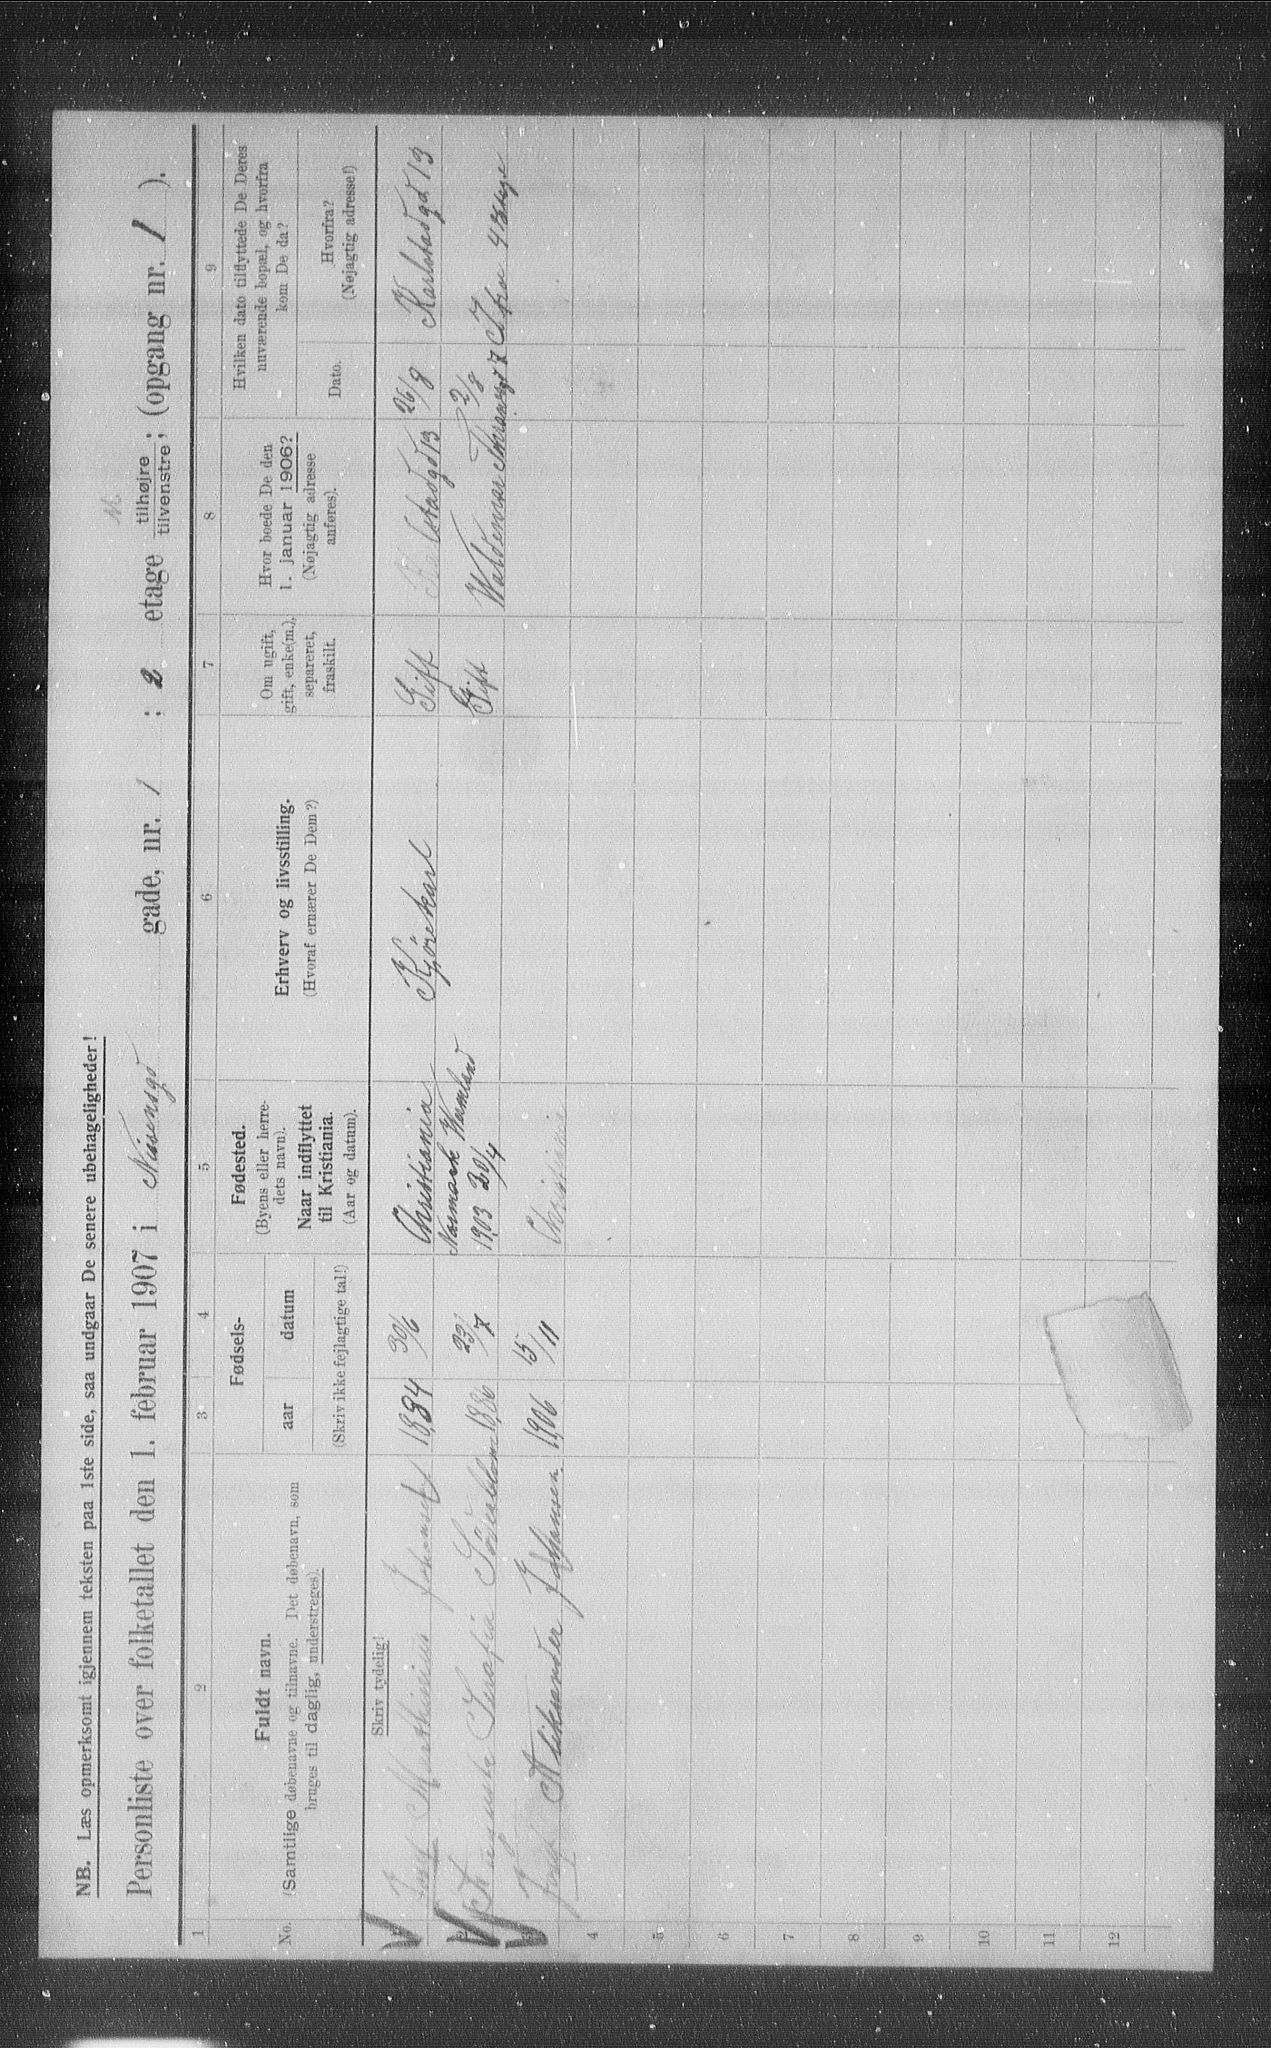 NB. Læs opmerksomt igjennem teksten paa 1ste side, saa undgaar De senere ubehageligheder!
Personliste over folketallet den 1. februar 1907 i Nissensgd gade, nr. 1 : 2 etage tilhøjre tilvenstre; (opgang nr. 1 ).
1 2 3 4 5 6 7 8 9
No.
Fuldt navn.
(Samtlige døbenavne og tilnavne. Det døbenavn, som
bruges til daglig, understreges).
Fødsels-
aar datum
(Skriv ikke fejlagtige tal!)
Fødested.
(Byens eller herre-
dets navn).
Naar indflyttet
til Kristiania.
(Aar og datum).
Erhverv og livsstilling.
(Hvoraf ernærer De Dem?)
Om ugift,
gift, enke(m.),
separeret,
fraskilt.
Hvor boede De den
1. januar 1906?
(Nøjagtig adresse
anføres).
Hvilken dato tilflyttede De Deres
nuværende bopæl, og hvorfra
kom De da?
Dato.
Hvorfra?
(Nøjagtig adresse!)
Skriv tydelig!
Marthinius Johansen 1884 30/6 Christiania Kjørekarl Gift Karlstadgd 13 26/8 Karlstadgd 13
Serafia Söderblom 1886 23/7 Wermland 1903 20/4 Gift Waldemar Thranesgd 7 2/8
Aleksander Johansen. 1906 15/11 Christiania
4
5
6
7
8
9
10
11
12